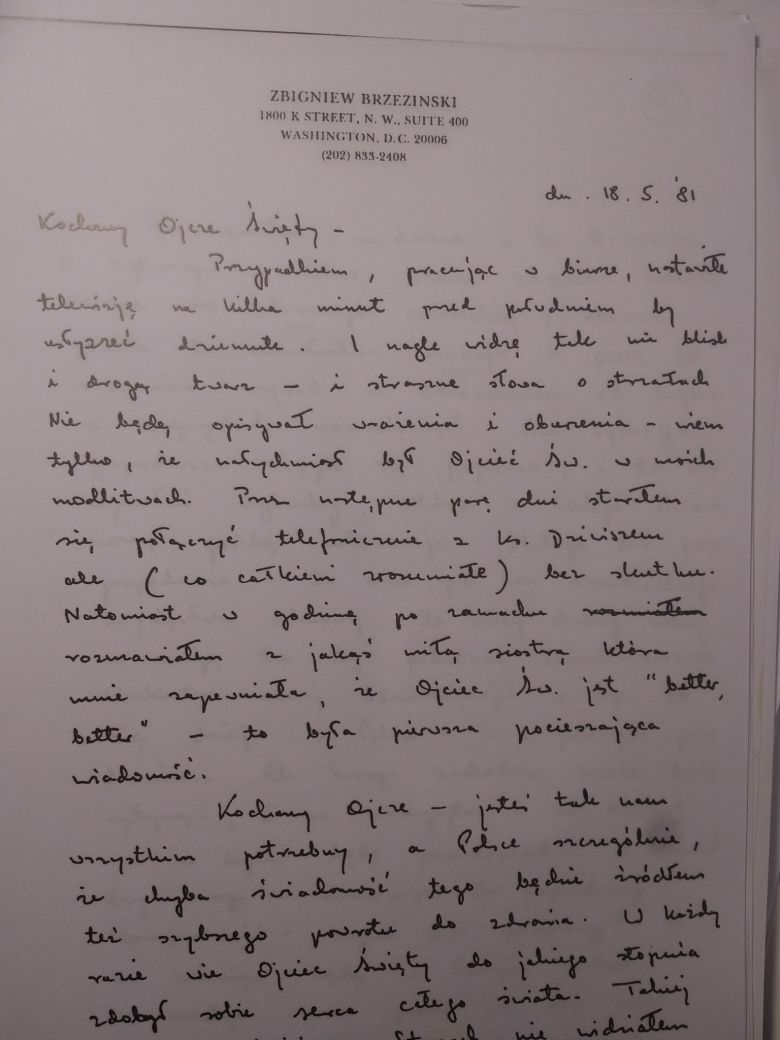 ZBIGNIEW BRZEZINSKI
1800 K STREET, N. W., SUITE 400
WASHINGTON, D.C. 20006
(202) 833-2408
dn. 18. 5. '81
Kochany Ojcze Święty –
Przypadkiem, pracując w biurze, nastawiłem
telewizję na kilka minut przed południem by
usłyszeć dziennik. I nagle widzę tak mi blisk
i drogą twarz – i straszne słowa o strzałach
Nie będę opisywał wrażenia i oburzenia – wiem
tylko, że natychmiast był Ojciec Św. w moich
modlitwach. Przez następne parę dni starałem
się połączyć telefonicznie z ks. Dziwiszem
ale (co całkiem zrozumiałe) bez skutku.
Natomiast w godzinę po zamachu rozmiałem
rozmawiałem z jakąś miłą siostrą która
mnie zapewniała, że Ojciec Św. jest "better,
better" – to była pierwsza pocieszająca
wiadomość.
Kochany Ojcze – jesteś tak nam
wszystkim potrzebny, a Polsce szczególnie,
że chyba świadomość tego będzie źródłem
też szybszego powrotu do zdrowia. W każdy
razie wie Ojciec Święty do jakiego stopnia
zdobył sobie serca całego świata. Takiej
nie widziałem